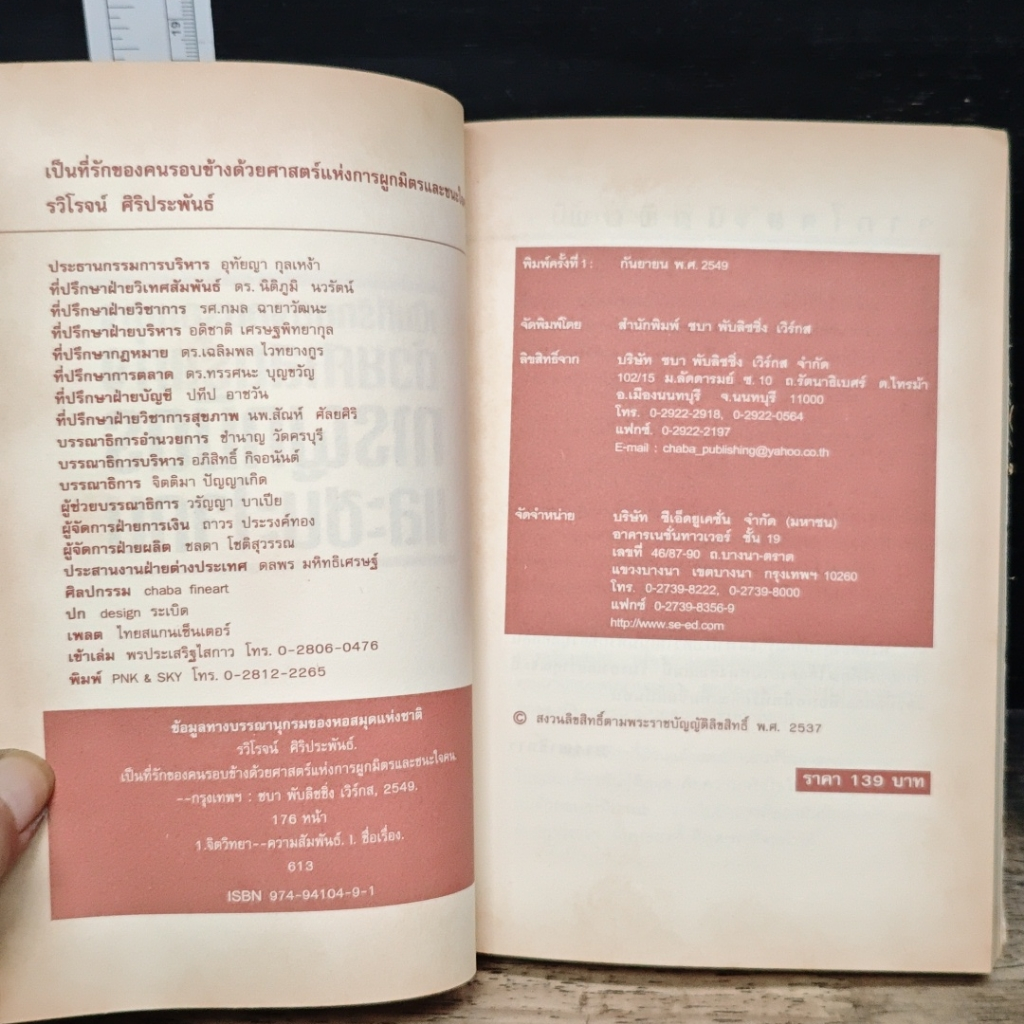 19
เป็นที่รักของคนรอบข้างด้วยศาสตร์แห่งการผูกมิตรและชนะใจ
รวิโรจน์ ศิริประพันธ์
ประธานกรรมการบริหาร อุทัยญา กุลเหง้า
ที่ปรึกษาฝ่ายวิเทศสัมพันธ์ ดร.นิติภูมิ นวรัตน์
ที่ปรึกษาฝ่ายวิชาการ รศ.กมล ฉายาวัฒนะ
ที่ปรึกษาฝ่ายบริหาร อดิชาติ เศรษฐพิทยากุล
ที่ปรึกษากฎหมาย ดร.เฉลิมพล ไวทยางกูร
ที่ปรึกษาการตลาด ดร.ทรรศนะ บุญขวัญ
ที่ปรึกษาฝ่ายบัญชี ปทีป อาชวัน
ที่ปรึกษาฝ่ายวิชาการสุขภาพ นพ.สัณห์ ศัลยศิริ
บรรณาธิการอำนวยการ ชำนาญ วัดครบุรี
บรรณาธิการบริหาร อภิสิทธิ์ กิจอนันต์
บรรณาธิการ จิตติมา ปัญญาเกิด
ผู้ช่วยบรรณาธิการ วรัญญา บาเปีย
ผู้จัดการฝ่ายการเงิน ถาวร ประรงค์ทอง
ผู้จัดการฝ่ายผลิต ชลดา โชติสุวรรณ
ประสานงานฝ่ายต่างประเทศ ดลพร มหิทธิเศรษฐ์
ศิลปกรรม chaba fineart
ปก design ระเบิด
เพลต ไทยสแกนเซ็นเตอร์
เข้าเล่ม พรประเสริฐไสกาว โทร. 0-2806-0476
พิมพ์ PNK & SKY โทร. 0-2812-2265
ข้อมูลทางบรรณานุกรมของหอสมุดแห่งชาติ
รวิโรจน์ ศิริประพันธ์.
เป็นที่รักของคนรอบข้างด้วยศาสตร์แห่งการผูกมิตรและชนะใจคน.
--กรุงเทพฯ : ชบา พับลิชชิ่ง เวิร์กส, 2549.
176 หน้า
1.จิตวิทยา--ความสัมพันธ์. I. ชื่อเรื่อง.
613
ISBN 974-94104-9-1
พิมพ์ครั้งที่ 1 : กันยายน พ.ศ. 2549
จัดพิมพ์โดย สำนักพิมพ์ ชบา พับลิชชิ่ง เวิร์กส
ลิขสิทธิ์จาก บริษัท ชบา พับลิชชิ่ง เวิร์กส จำกัด
102/15 ม.ลัดดารมย์ ซ. 10 ถ.รัตนาธิเบศร์ ต.ไทรม้า
อ.เมืองนนทบุรี จ.นนทบุรี 11000
โทร. 0-2922-2918, 0-2922-0564
แฟกซ์. 0-2922-2197
E-mail : chaba_publishing@yahoo.co.th
จัดจำหน่าย บริษัท ซีเอ็ดยูเคชั่น จำกัด (มหาชน)
อาคารเนชั่นทาวเวอร์ ชั้น 19
เลขที่ 46/87-90 ถ.บางนา-ตราด
แขวงบางนา เขตบางนา กรุงเทพฯ 10260
โทร. 0-2739-8222, 0-2739-8000
แฟกซ์ 0-2739-8356-9
http://www.se-ed.com
© สงวนลิขสิทธิ์ตามพระราชบัญญัติลิขสิทธิ์ พ.ศ. 2537
ราคา 139 บาท